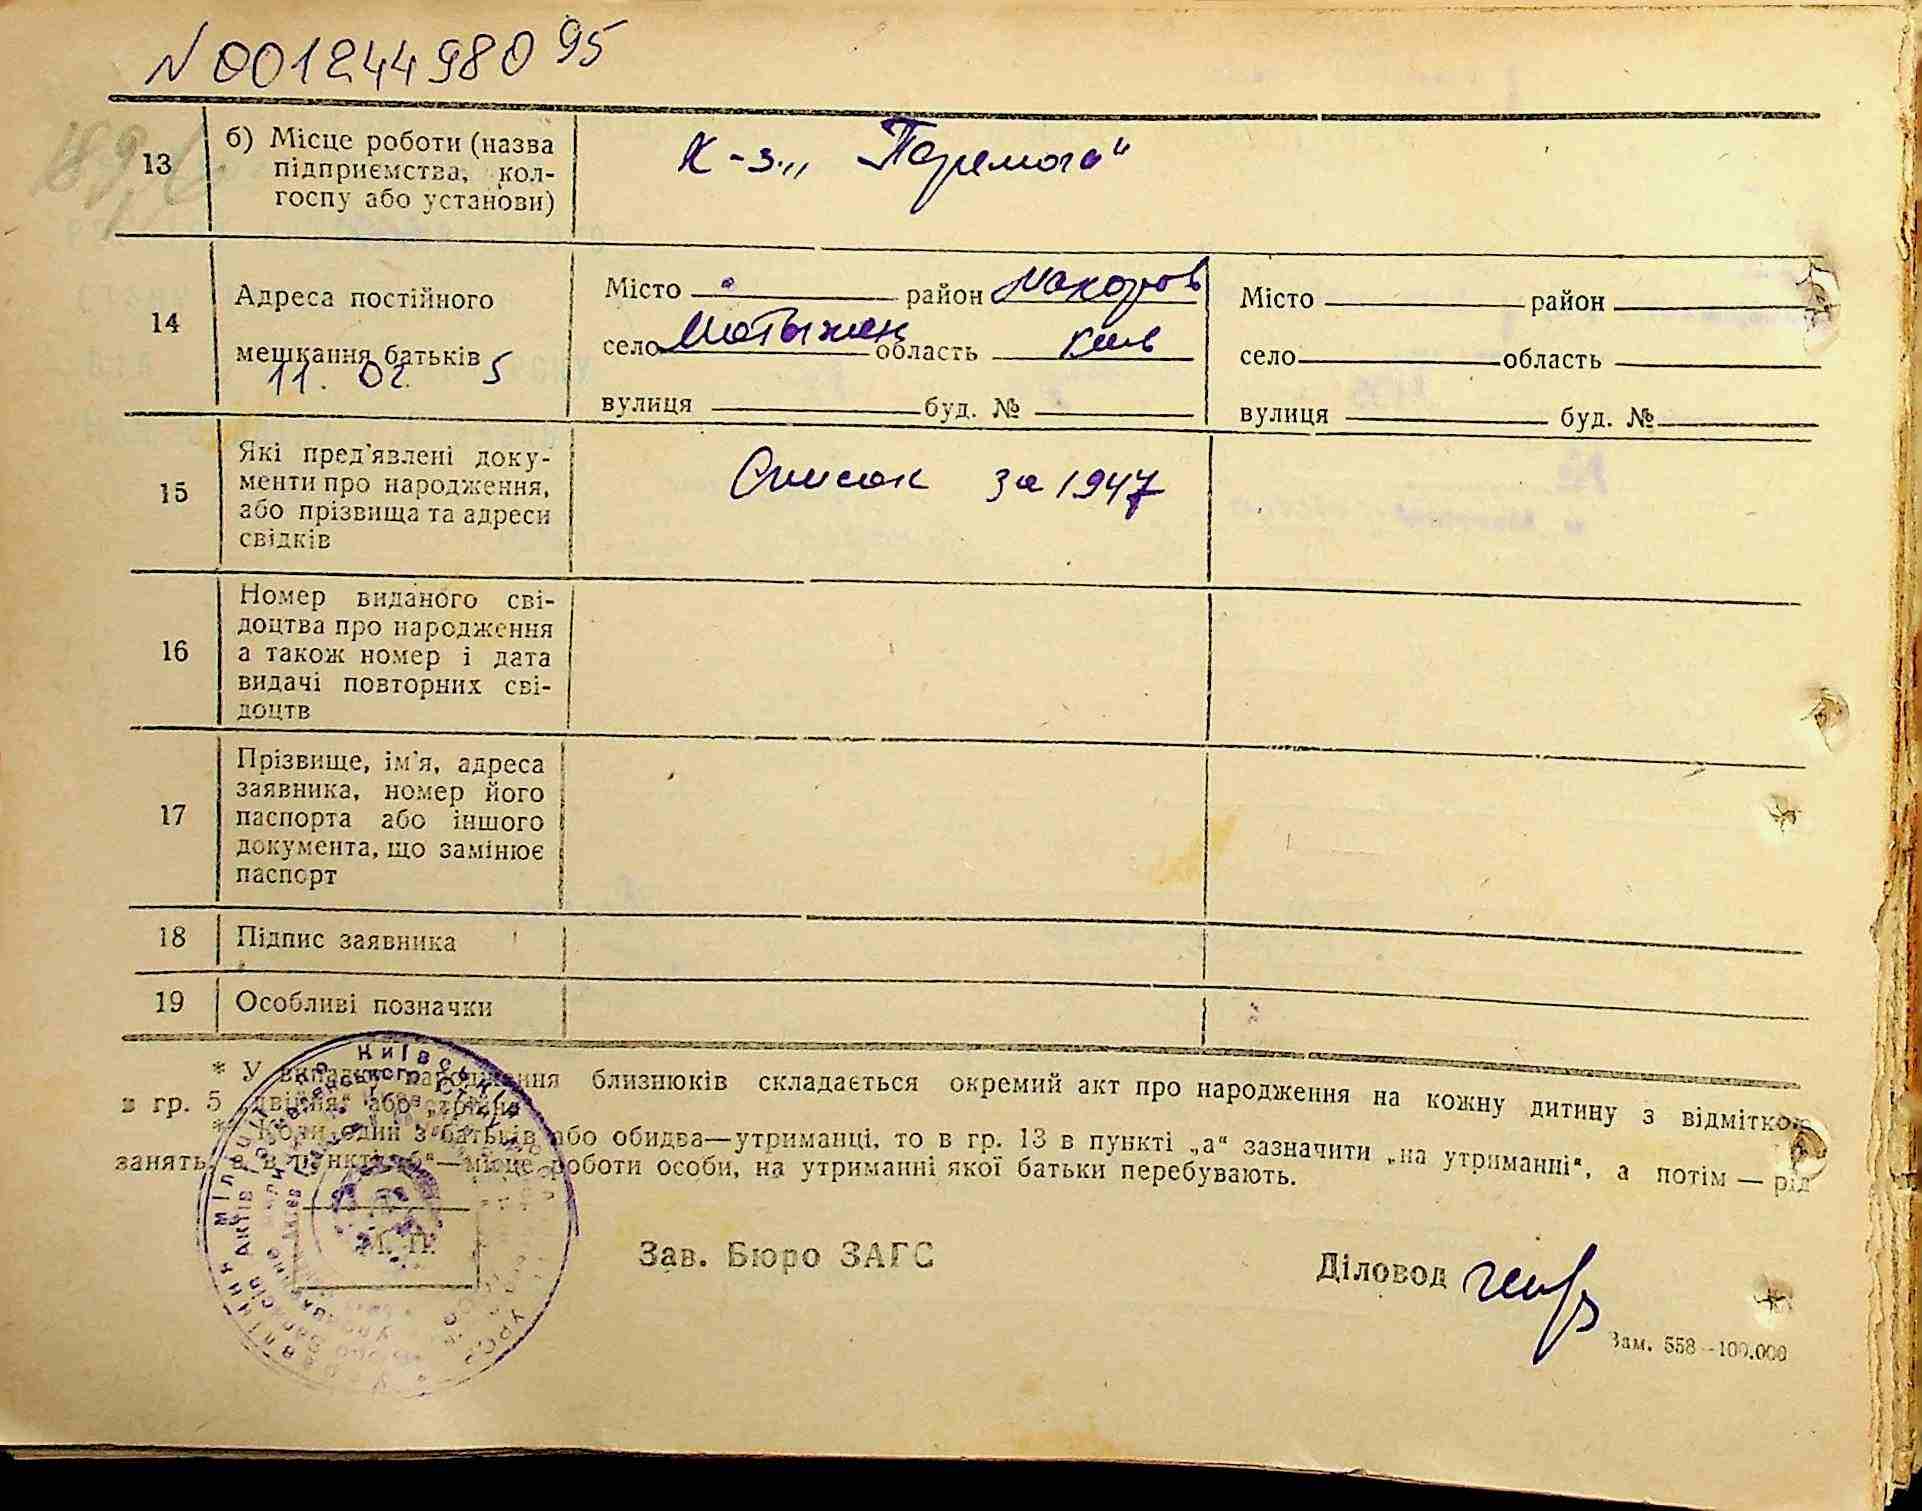 N 00124498095
13
б) Місце роботи (назва
підприємства, кол-
госпу або установи)
к-з „Перемога“
14
Адреса постійного
мешкання батьків
11. 02. 5
Місто район Макаров
село Мотыжин область Киев
вулиця буд. №
Місто район
село область
вулиця буд. №
15
Які пред'явлені доку-
менти про народження,
або прізвища та адреси
свідків
Список за 1947
16
Номер виданого сві-
доцтва про народження
а також номер і дата
видачі повторних сві-
доцтв
17
Прізвище, ім'я, адреса
заявника, номер його
паспорта або іншого
документа, що замінює
паспорт
18
Підпис заявника
19
Особливі позначки
* У випадку народження близнюків складається окремий акт про народження на кожну дитину з відміткою
в гр. 5 „двійня“ або „трійня“
** Коли один з батьків або обидва—утриманці, то в гр. 13 в пункті „а“ зазначити „на утриманні“, а потім — рід
занять, а в пункті „б“—місце роботи особи, на утриманні якої батьки перебувають.
М. П.
Зав. Бюро ЗАГС
Діловод
Зам. 558—100.000